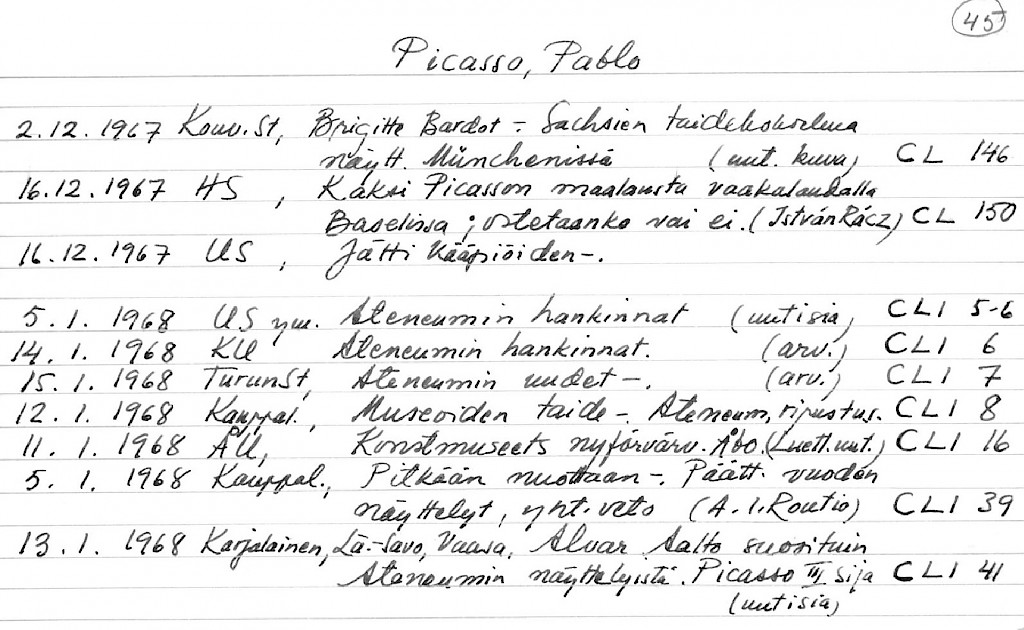 45
Picasso, Pablo
2.12.1967 Kouv.St, Brigitte Bardot - Sachsien taidekokoelma
näytt. Münchenissä (uut. kuva) CL 146
16.12.1967 HS, Kaksi Picasson maalausta vaakalaudalla
Baselissa; ostetaanko vai ei. (István Rácz) CL 150
16.12.1967 US, Jätti kääpiöiden-.
5.1.1968 US ym. Ateneumin hankinnat (uutisia) CLI 5-6
14.1.1968 KU Ateneumin hankinnat. (arv.) CLI 6
15.1.1968 TurunSt, Ateneumin uudet-. (arv.) CLI 7
12.1.1968 Kauppal., Museoiden taide - Ateneum, ripustus. CLI 8
11.1.1968 ÅU, Konstmuseets nyförvärv. Åbo (Luett. uut.) CLI 16
5.1.1968 Kauppal., Pitkään nuottaan-. Päätt. vuoden
näyttelyt, yht.veto (A.I. Routio) CLI 39
13.1.1968 Karjalainen, Lä.-Savo, Vaasa, Alvar Aalto suosituin
Ateneumin näyttelyistä. Picasso III sija CLI 41
(uutisia)